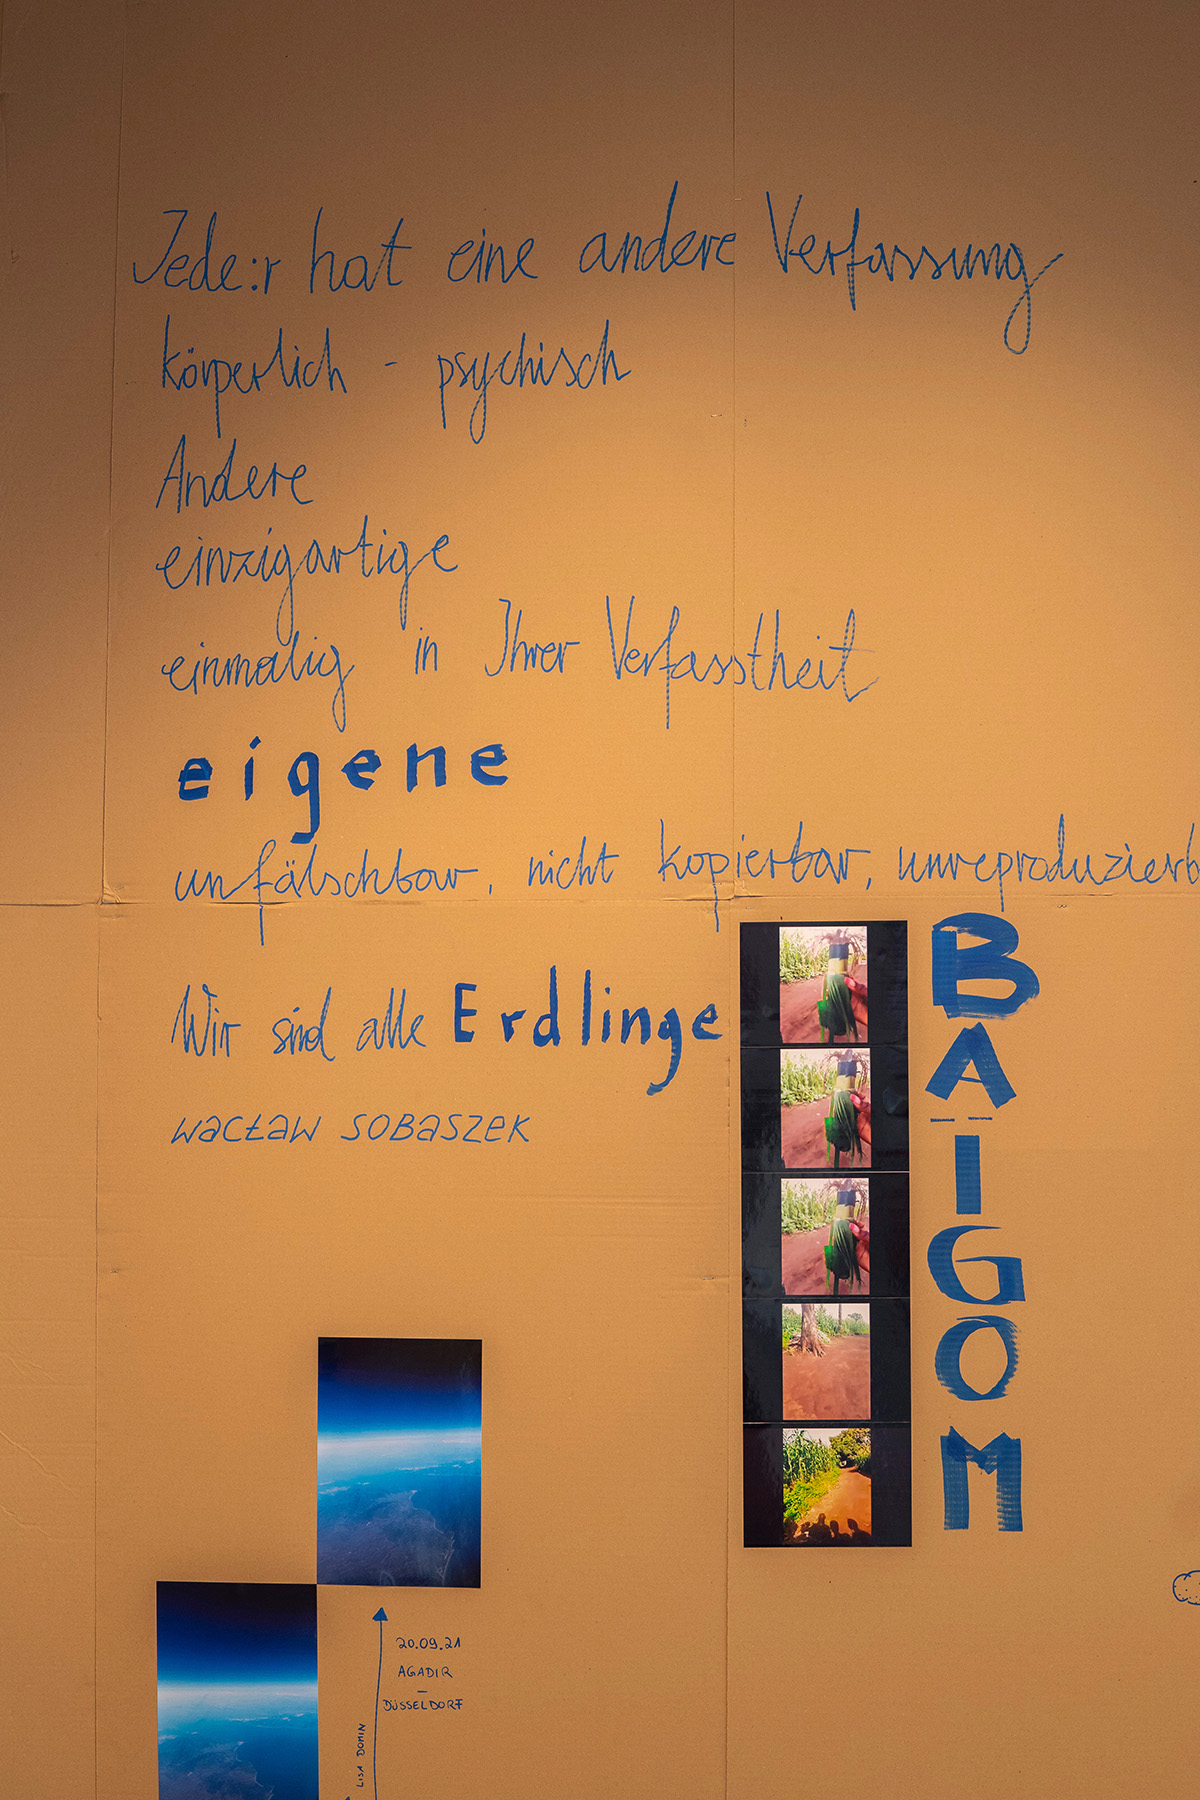 Jede:r hat eine andere Verfassung
körperlich - psychisch
Andere
einzigartige
einmalig in Ihrer Verfasstheit
eigene
unfälschbar, nicht kopierbar, unreproduzierb
Wir sind alle Erdlinge
WACŁAW SOBASZEK
BAIGOM
20.09.21
AGADIR
–
DÜSSELDORF
LISA DOMIN